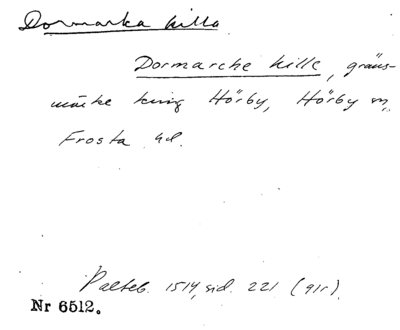 Dormarka killa
Dormarche kille, gräns-
märke kring Hörby, Hörby sn,
Frosta hd.
Palteb. 1514, sid. 221 (91r).
Nr 6512.